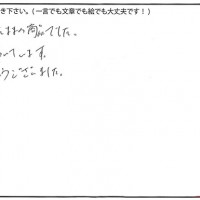 き下さい。(一言でも文章でも絵でも大丈夫です！)
でした。
ています。
うございました。